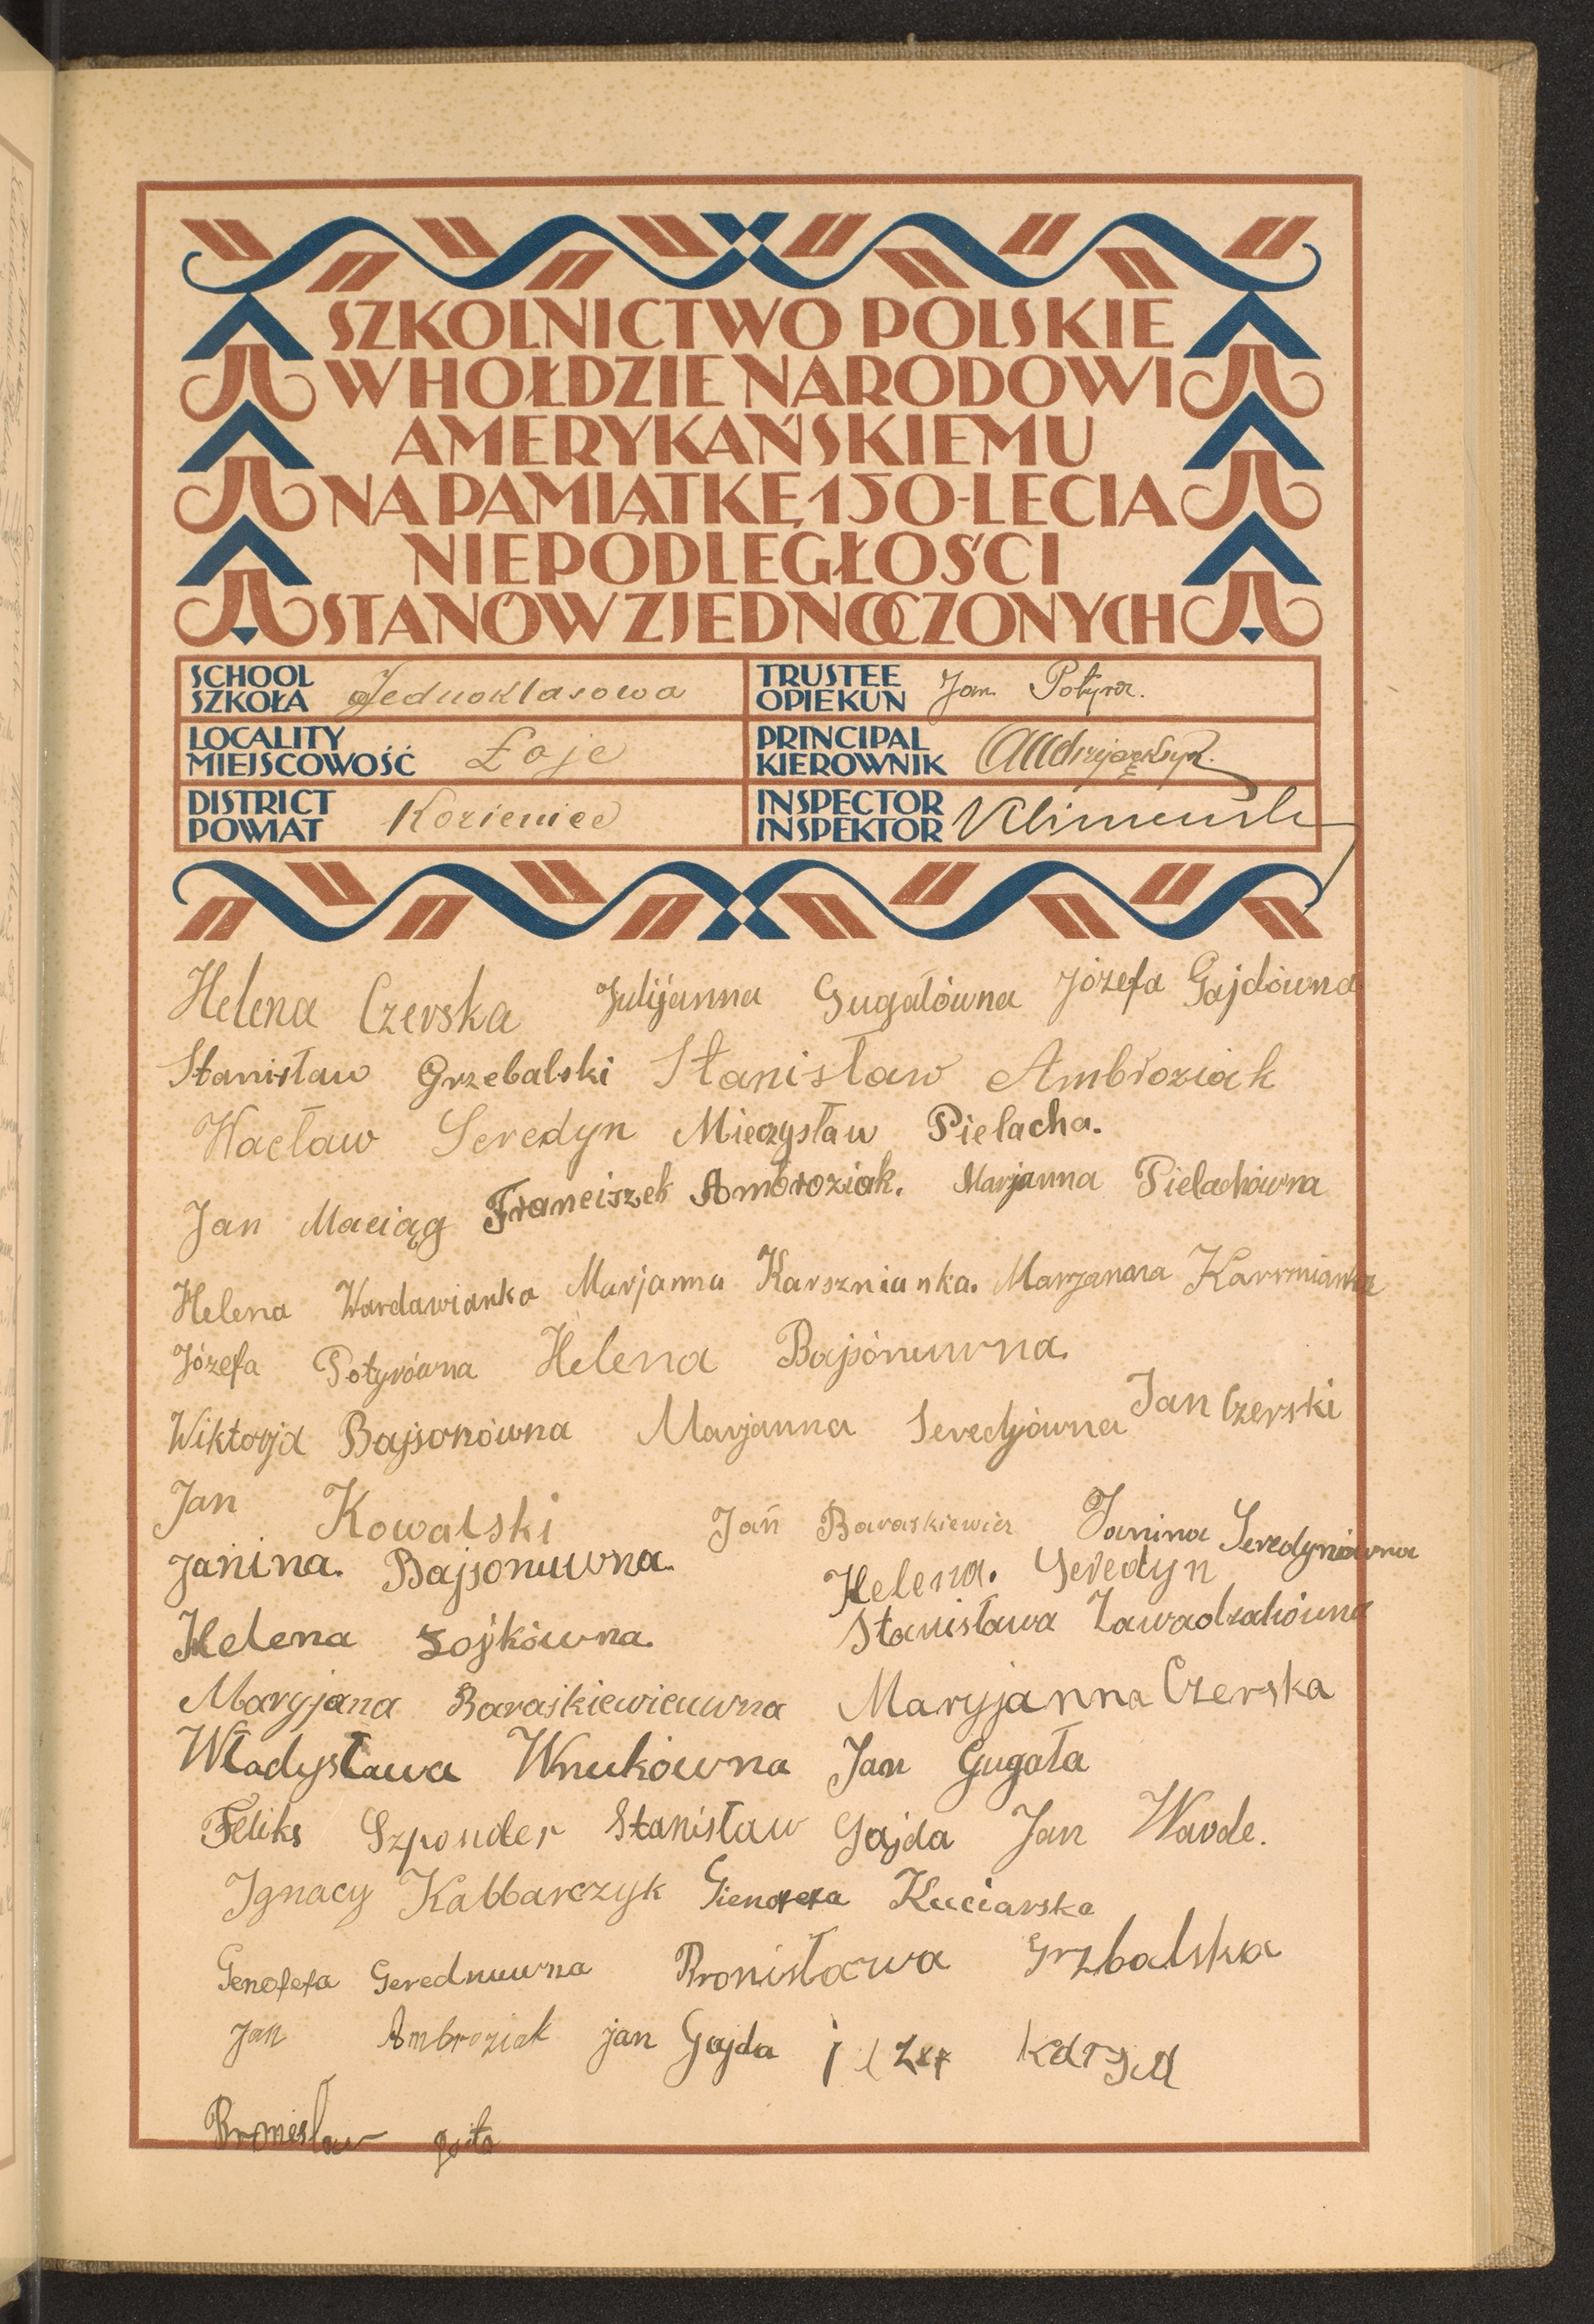 SZKOLNICTWO POLSKIE
W HOŁDZIE NARODOWI
AMERYKAŃSKIEMU
NA PAMIĄTKĘ 150-LECIA
NIEPODLEGŁOŚCI
STANÓW ZJEDNOCZONYCH
SCHOOL
SZKOŁA Jednoklasowa
TRUSTEE
OPIEKUN Jan Potyra.
LOCALITY
MIEJSCOWOŚĆ Łoje
PRINCIPAL
KIEROWNIK
DISTRICT
POWIAT Kozienice
INSPECTOR
INSPEKTOR
Helena Czerska Julijanna Gugałówna Józefa Gajdówna
Stanisław Grzebalski Stanisław Ambroziak
Wacław Seredyn Mieczysław Pielacha.
Jan Maciąg Franciszek Ambroziak. Marjanna Pielachówna
Helena Wardawianka Marjanna Karsznianka. Marjanna Karsznianka
Józefa Potyrówna Helena Bajsónuwna.
Wiktorja Bajsonówna Marjanna Seredyówna Jan Czerski
Jan Kowalski Jan Baraskiewicz Janina Seredyniówna
Janina. Bajsonuwna. Helena. Seredyn
Helena Zojkówna. Stanisława Zawadzakówna
Maryjana Baraśkiewicuwna Maryjanna Czerska
Władysława Wnukówna Jan Gugała
Feliks Szponder Stanisław Gajda Jan Warde.
Ignacy Kabbarczyk Gienofefa Kuciarska
Genofefa Serednuwna Bronisława Grzbalska
Jan Ambroziak jan Gajda
Bronisław